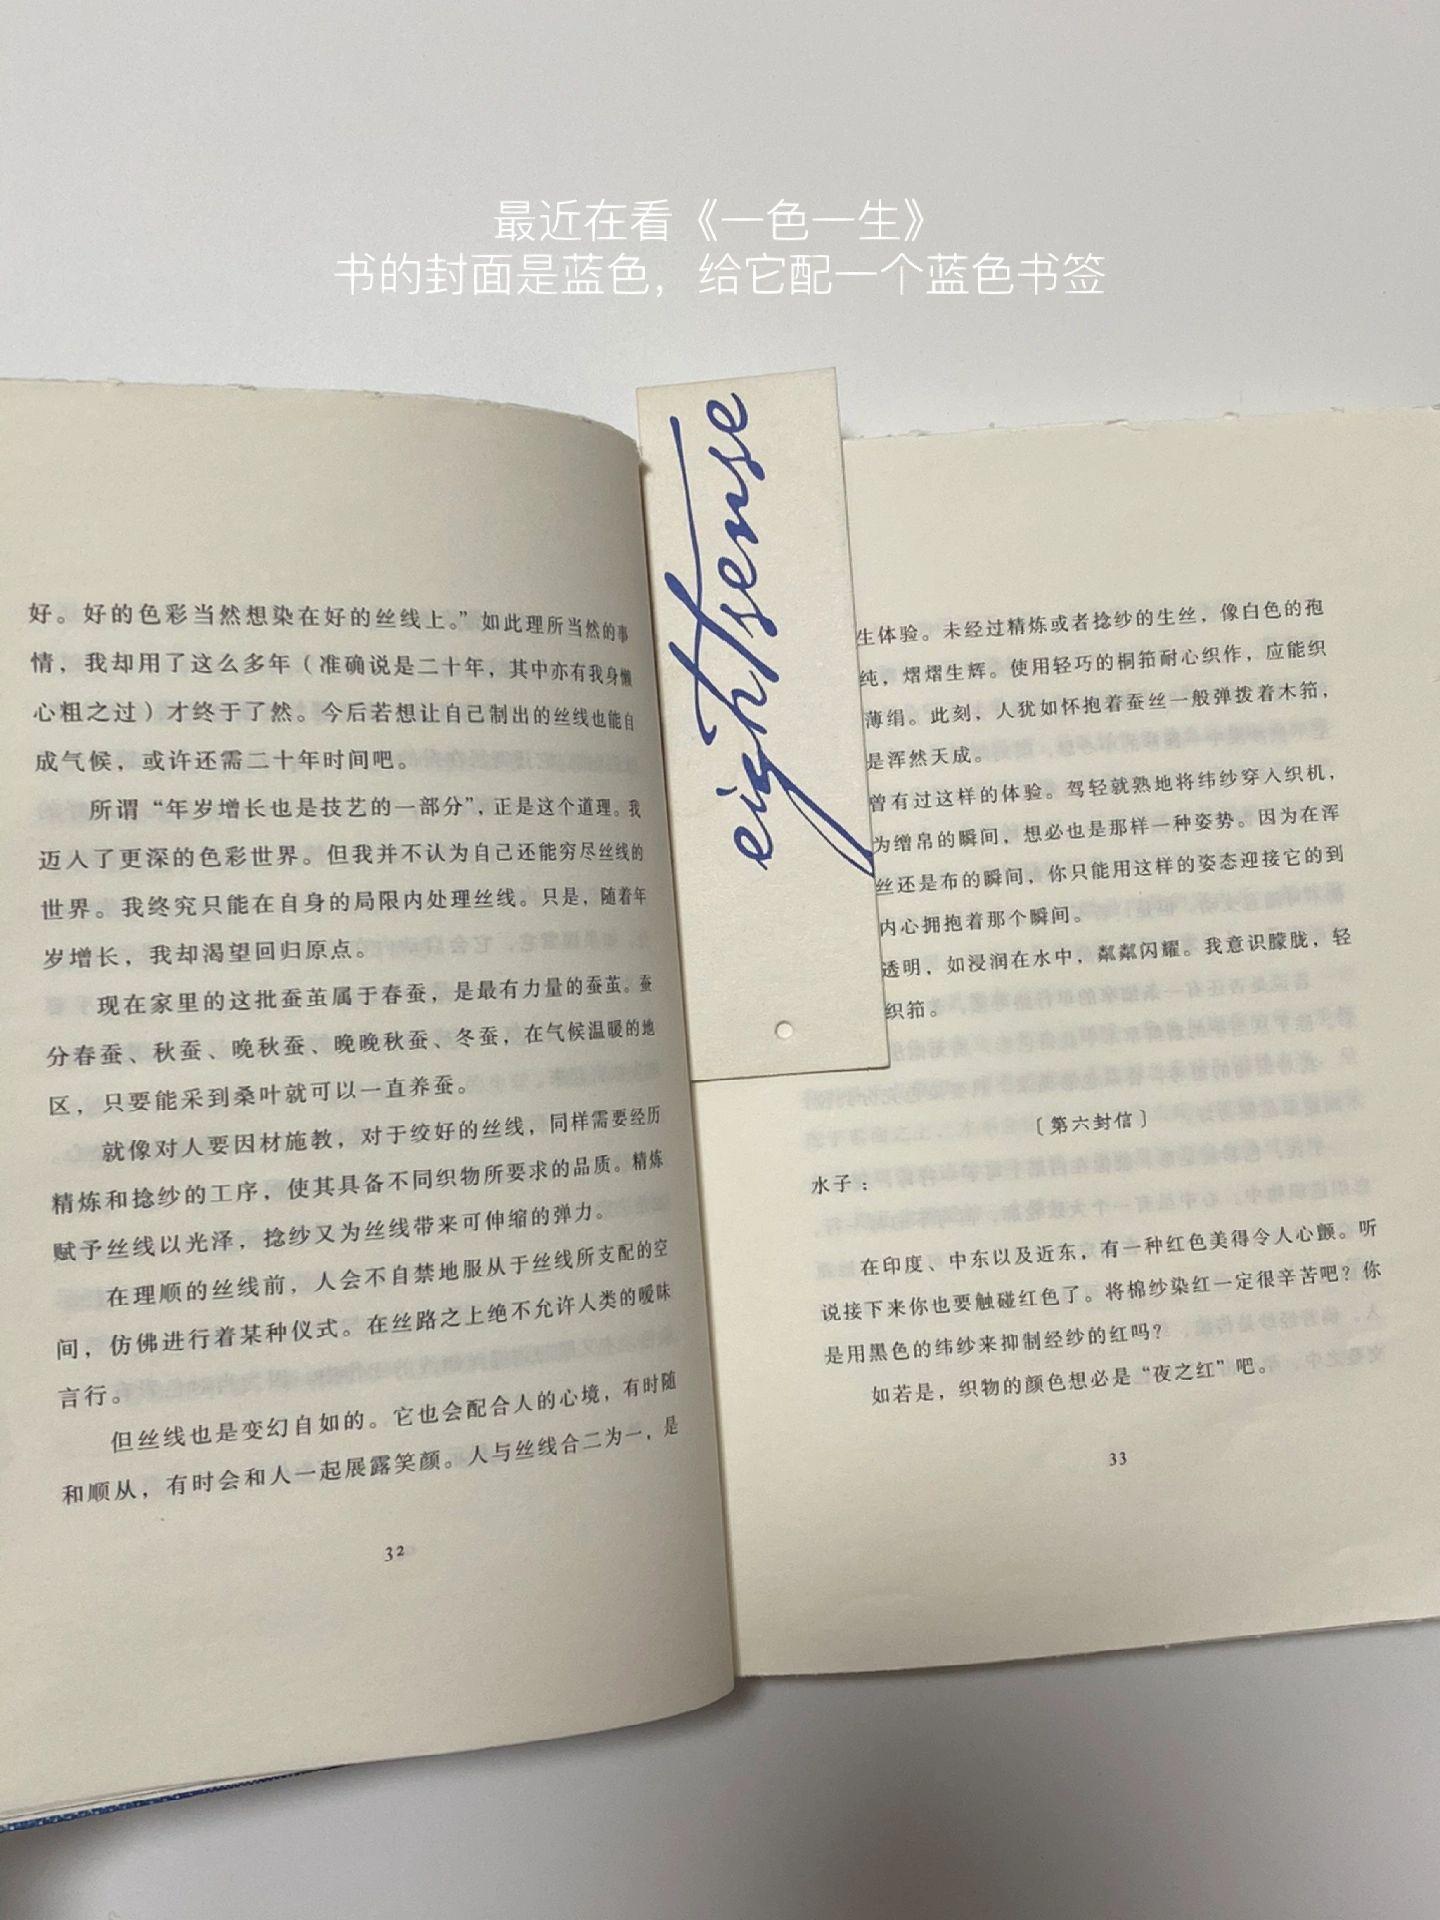 最近在看《一色一生》
书的封面是蓝色，给它配一个蓝色书签
eightsense
好。好的色彩当然想染在好的丝线上。”如此理所当然的事
情，我却用了这么多年（准确说是二十年，其中亦有我身懒
心粗之过）才终于了然。今后若想让自己制出的丝线也能自
成气候，或许还需二十年时间吧。
所谓“年岁增长也是技艺的一部分”，正是这个道理。我
迈入了更深的色彩世界。但我并不认为自己还能穷尽丝线的
世界。我终究只能在自身的局限内处理丝线。只是，随着年
岁增长，我却渴望回归原点。
现在家里的这批蚕茧属于春蚕，是最有力量的蚕茧。蚕
分春蚕、秋蚕、晚秋蚕、晚晚秋蚕、冬蚕，在气候温暖的地
区，只要能采到桑叶就可以一直养蚕。
就像对人要因材施教，对于绞好的丝线，同样需要经历
精炼和捻纱的工序，使其具备不同织物所要求的品质。精炼
赋予丝线以光泽，捻纱又为丝线带来可伸缩的弹力。
在理顺的丝线前，人会不自禁地服从于丝线所支配的空
间，仿佛进行着某种仪式。在丝路之上绝不允许人类的暧昧
言行。
但丝线也是变幻自如的。它也会配合人的心境，有时随
和顺从，有时会和人一起展露笑颜。人与丝线合二为一，是
32
生体验。未经过精炼或者捻纱的生丝，像白色的孢
纯，熠熠生辉。使用轻巧的桐筘耐心织作，应能织
薄绢。此刻，人犹如怀抱着蚕丝一般弹拨着木筘，
是浑然天成。
曾有过这样的体验。驾轻就熟地将纬纱穿入织机，
为缯帛的瞬间，想必也是那样一种姿势。因为在浑
丝还是布的瞬间，你只能用这样的姿态迎接它的到
内心拥抱着那个瞬间。
透明，如浸润在水中，粼粼闪耀。我意识朦胧，轻
织筘。
〔第六封信〕
水子：
在印度、中东以及近东，有一种红色美得令人心颤。听
说接下来你也要触碰红色了。将棉纱染红一定很辛苦吧？你
是用黑色的纬纱来抑制经纱的红吗？
如若是，织物的颜色想必是“夜之红”吧。
33